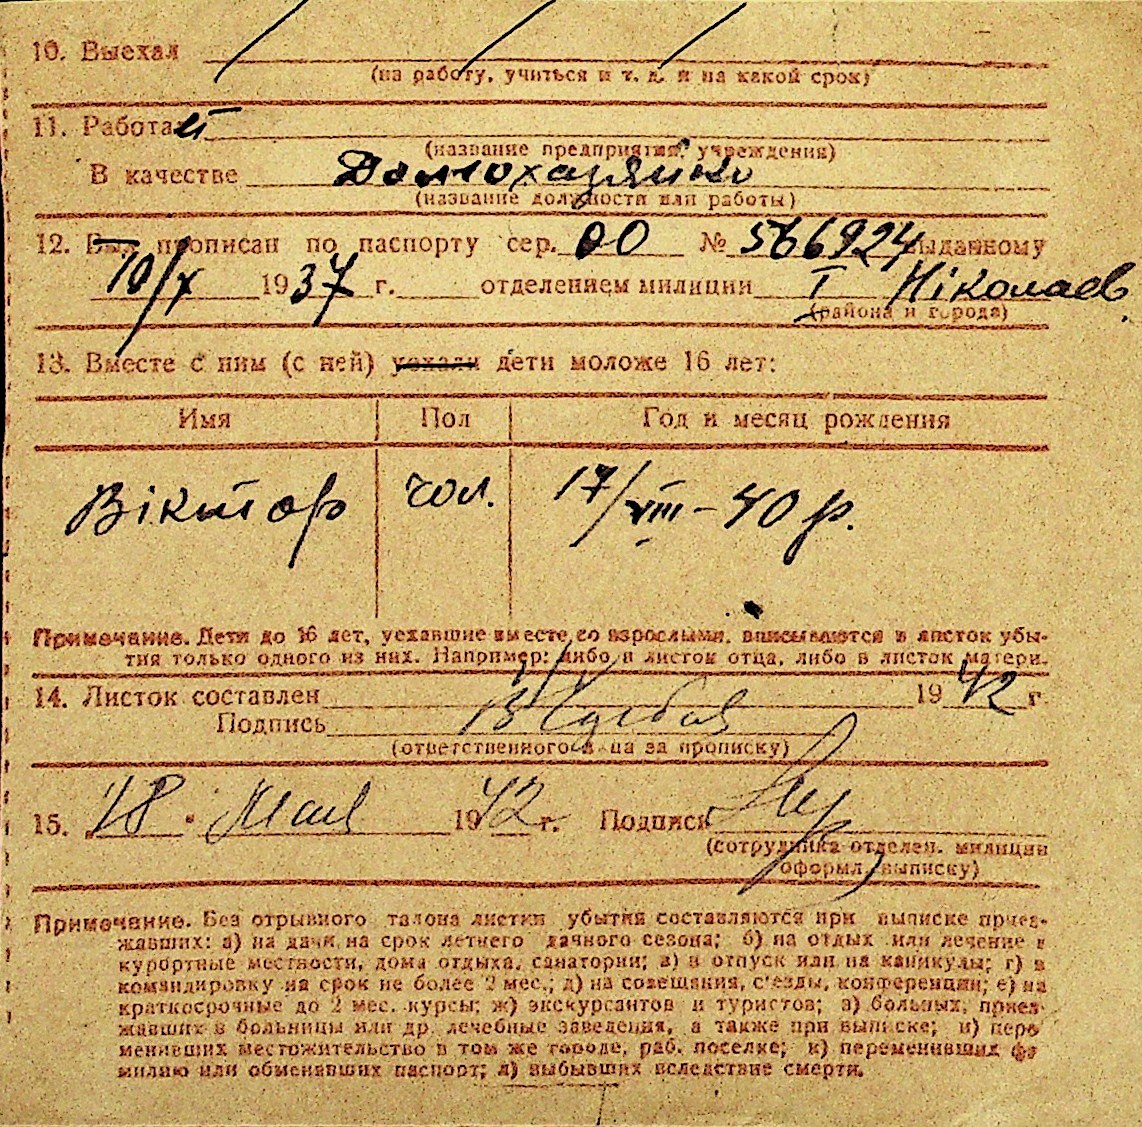 10. Выехал
(на работу, учиться и т. д. и на какой срок)
11. Работает
(название предприятия, учреждения)
В качестве Домохазяйко
(название должности или работы)
12. Был прописан по паспорту сер. ОО № 566924 выданному
10/X 1937 г. отделением милиции I Ніколаев
(района и города)
13. Вместе с ним (с ней) уехали дети моложе 16 лет:
Имя Пол Год и месяц рождения
Віктор чол. 17/VIII – 40 р.
Примечание. Дети до 16 лет, уехавшие вместе со взрослыми, вписываются в листок убы-
тия только одного из них. Например: либо в листок отца, либо в листок матери.
14. Листок составлен 1942 г
Подпись
(ответственного лица за прописку)
15. 18 Мая 1942 г. Подпись
(сотрудника отделен. милиции
оформл. выписку)
Примечание. Без отрывного талона листки убытия составляются при выписке приез-
жавших: а) на дачи на срок летнего дачного сезона; б) на отдых или лечение в
курортные местности, дома отдыха, санатории; в) в отпуск или на каникулы; г) в
командировку на срок не более 2 мес.; д) на совещания, с'езды, конференции; е) на
краткосрочные до 2 мес. курсы; ж) экскурсантов и туристов; з) больных, приез-
жавших в больницы или др. лечебные заведения, а также при выписке; и) пере
менивших местожительство в том же городе, раб. поселке; к) переменивших фа
милию или обменявших паспорт; л) выбывших вследствие смерти.